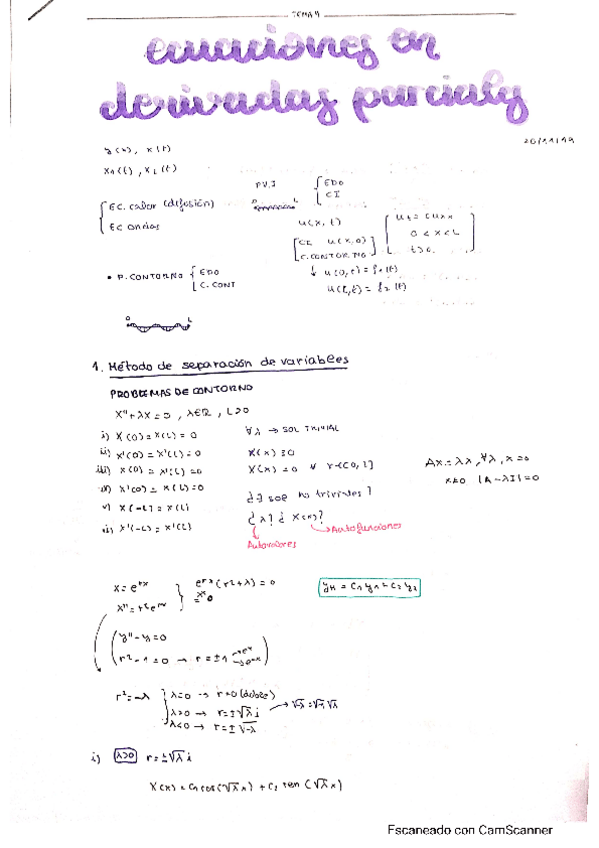 TEMA 4
ecuaciones en
derivadas parciales
20/11/19
y(x), x(t)
x₁(t), x₂(t)
P.V.I { EDO
C.I
{ EC. calor (difusión)
EC ondas
u(x, t)
[ C.I. u(x,0)
C. CONTORNO ]
[ ut = c uxx
0 < x < L
t>0 ]
↓ u(0,t) = f₁(t)
u(L,t) = f₂(t)
• P. CONTORNO { EDO
C. CONT
1. Método de separación de variables
PROBLEMAS DE CONTORNO
X'' + λX = 0, λ∈ℝ, L>0
i) X(0) = X(L) = 0
∀λ → SOL TRIVIAL
ii) X'(0) = X'(L) = 0
X(x) ≡ 0
iii) X(0) = X'(L) = 0
X(x) = 0 ∀ x∈[0, L]
iv) X'(0) = X(L) = 0
v) X(-L) = X(L)
vi) X'(-L) = X'(L)
Ax = λx, ∀λ, x=0
x≠0 |A-λI| = 0
¿∃ sol no triviales?
¿λ? ¿X(x)?
Autofunciones
Autovalores
X = e^rx
X'' = r²e^rx
} e^rx (r²+λ) = 0
≠0
yH = C₁y₁ + C₂y₂
( y'' - y = 0
r² - 1 = 0 → r = ±1 )
r² = -λ { λ=0 → r=0 (doble)
λ>0 → r = ±√λ i → √-λ = √-1 √λ
λ<0 → r = ±√-λ
i) λ>0 r = ±√λ i
X(x) = C₁ cos(√λ x) + C₂ sen(√λ x)
Escaneado con CamScanner